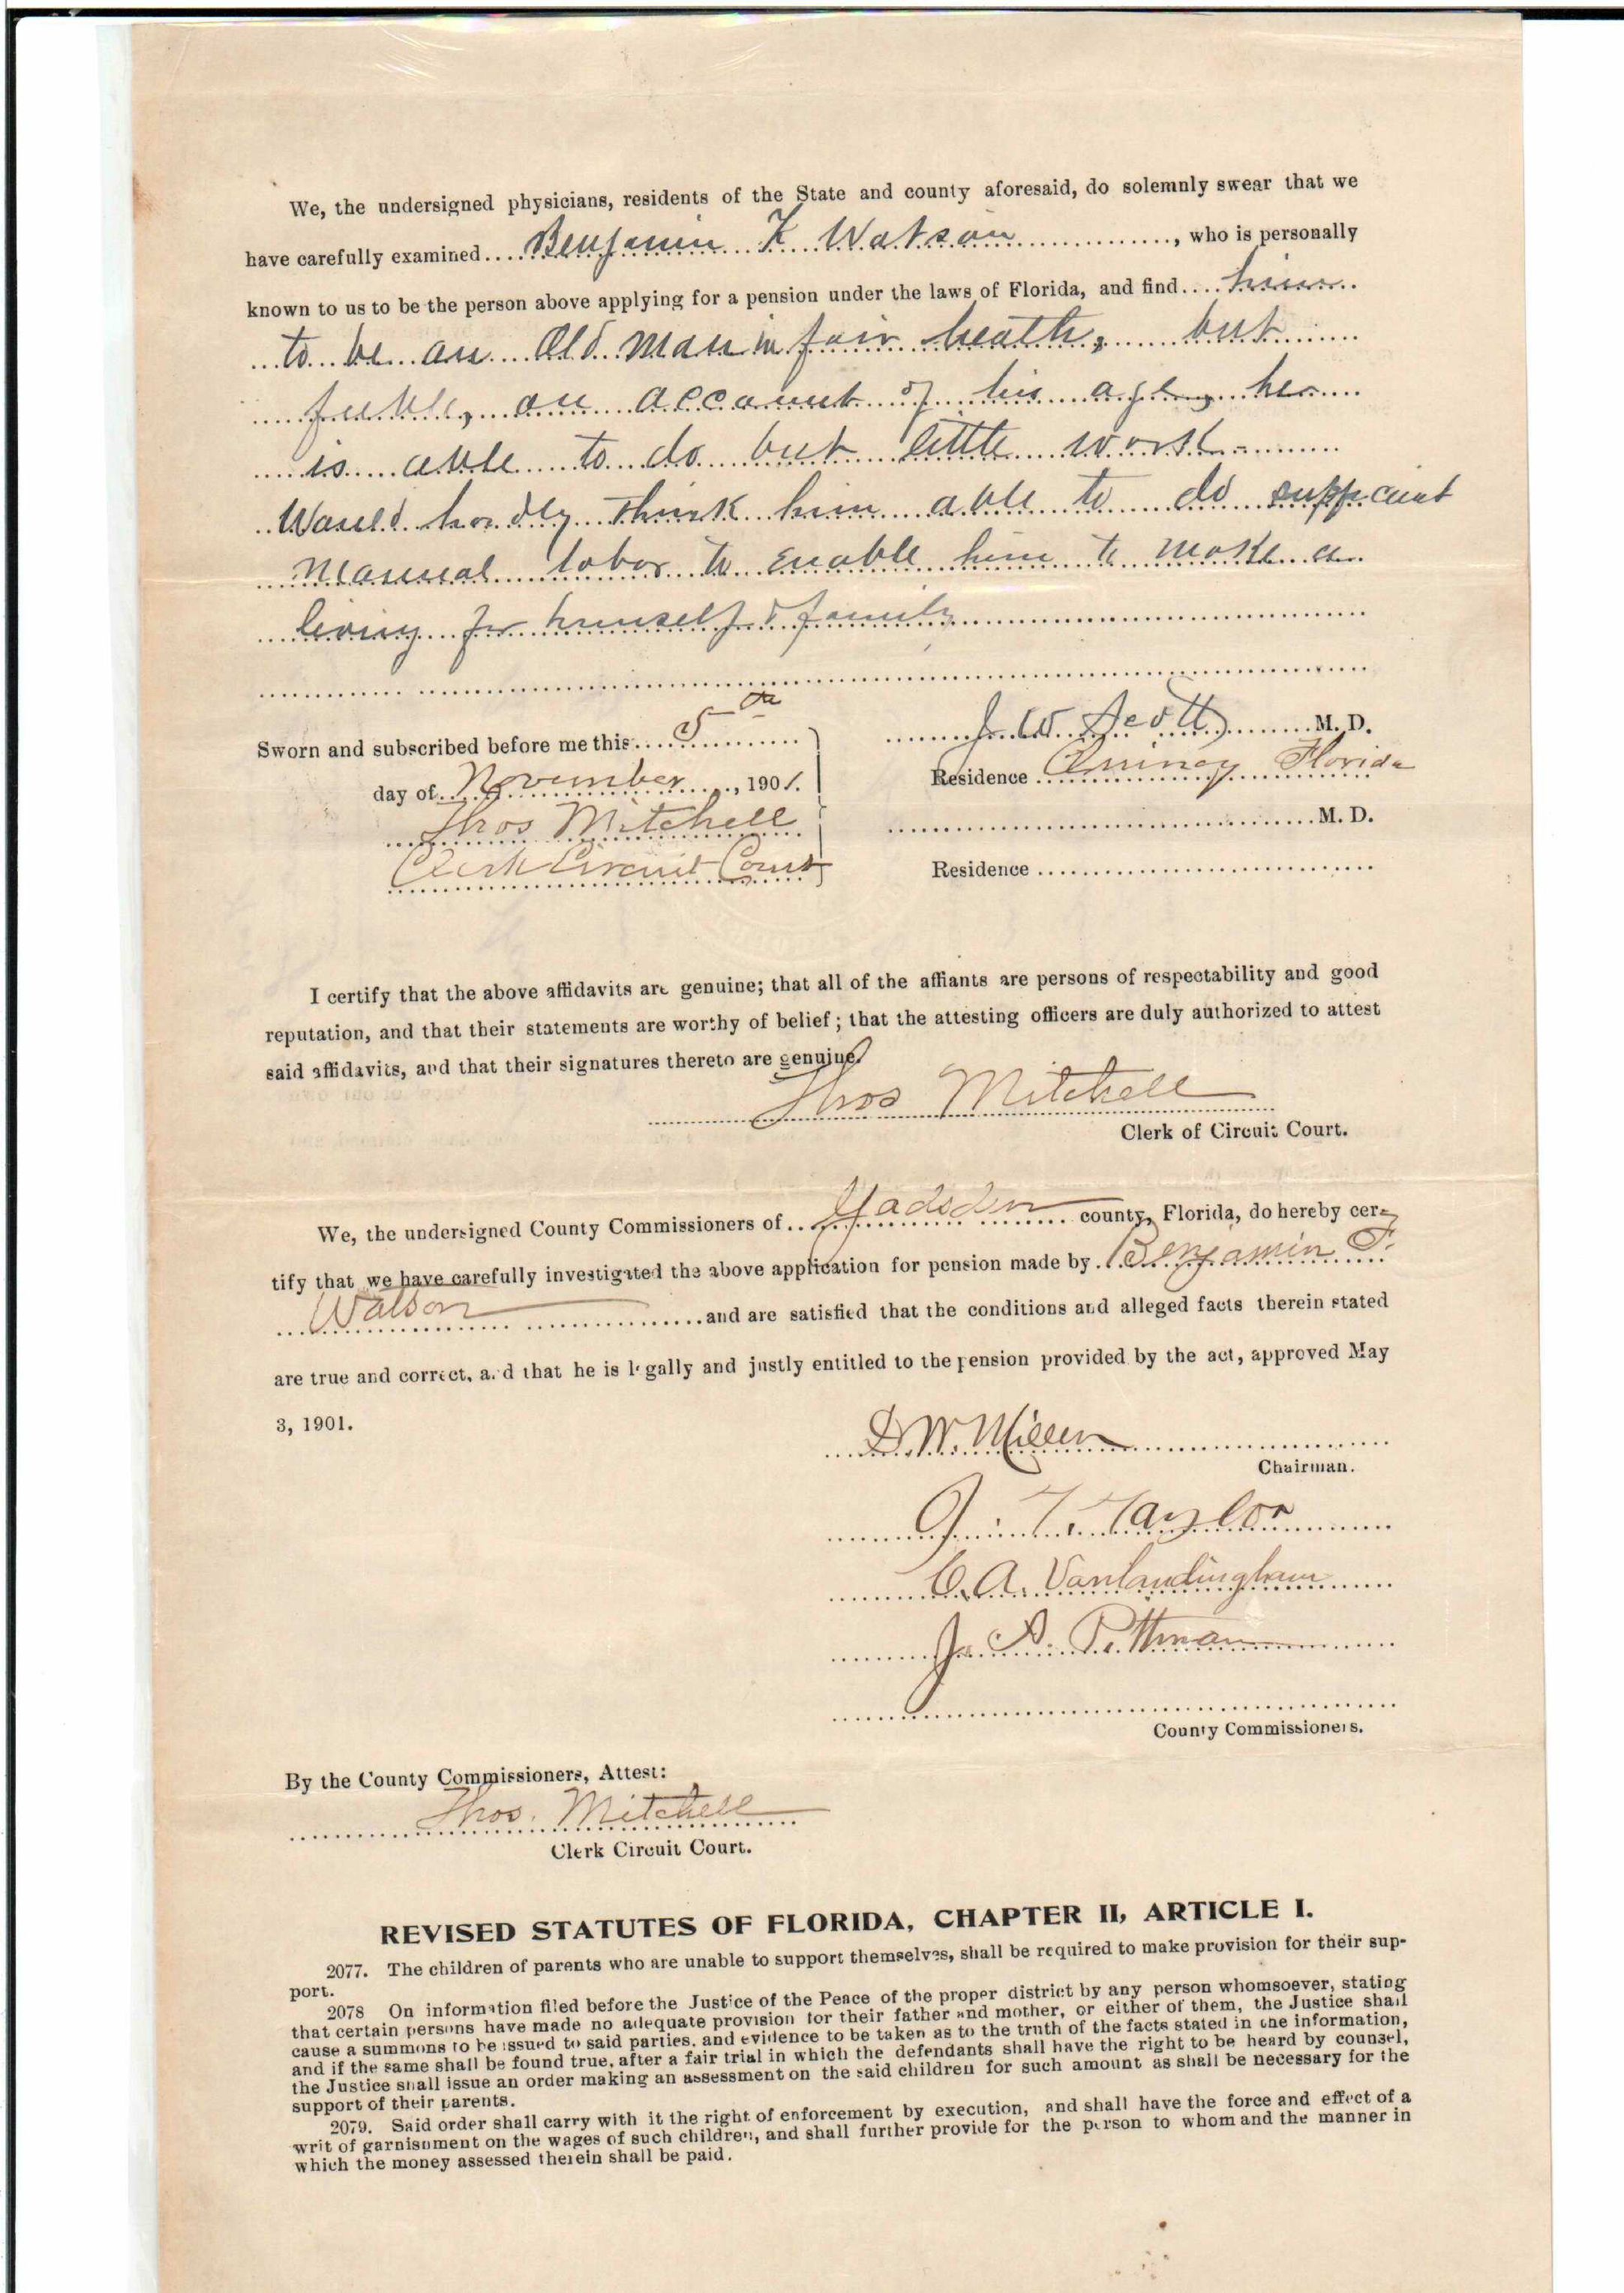 We, the undersigned physicians, residents of the State and county aforesaid, do solemnly swear that we
have carefully examined Benjamin K Watson, who is personally
known to us to be the person above applying for a pension under the laws of Florida, and find him
to be an Old man in fair heath, but
feeble, on account of his age, he
is able to do but little work -
Would hardly think him able to do supficient
manual labor to enable him to make a
living for himself & family
Sworn and subscribed before me this 5th
day of November, 1901.
Thos Mitchell
Clerk Circuit Court
J. W. Scott M. D.
Residence Quincy Florida
M. D.
Residence
I certify that the above affidavits are genuine; that all of the affiants are persons of respectability and good
reputation, and that their statements are worthy of belief; that the attesting officers are duly authorized to attest
said affidavits, and that their signatures thereto are genuine.
Thos Mitchell
Clerk of Circuit Court.
We, the undersigned County Commissioners of Gadsden county, Florida, do hereby cer-
tify that we have carefully investigated the above application for pension made by Benjamin F.
Watson and are satisfied that the conditions and alleged facts therein stated
are true and correct, and that he is legally and justly entitled to the pension provided by the act, approved May
3, 1901.
D. W. Miller
Chairman.
J. T. Taylor
C. A. Vanlandingham
J. A. Pittman
County Commissioners.
By the County Commissioners, Attest:
Thos. Mitchell
Clerk Circuit Court.
REVISED STATUTES OF FLORIDA, CHAPTER II, ARTICLE I.
2077. The children of parents who are unable to support themselves, shall be required to make provision for their sup-
port.
2078 On information filed before the Justice of the Peace of the proper district by any person whomsoever, stating
that certain persons have made no adequate provision for their father and mother, or either of them, the Justice shall
cause a summons to be issued to said parties, and evidence to be taken as to the truth of the facts stated in the information,
and if the same shall be found true, after a fair trial in which the defendants shall have the right to be heard by counsel,
the Justice shall issue an order making an assessment on the said children for such amount as shall be necessary for the
support of their parents.
2079. Said order shall carry with it the right of enforcement by execution, and shall have the force and effect of a
writ of garnishment on the wages of such children, and shall further provide for the person to whom and the manner in
which the money assessed therein shall be paid.